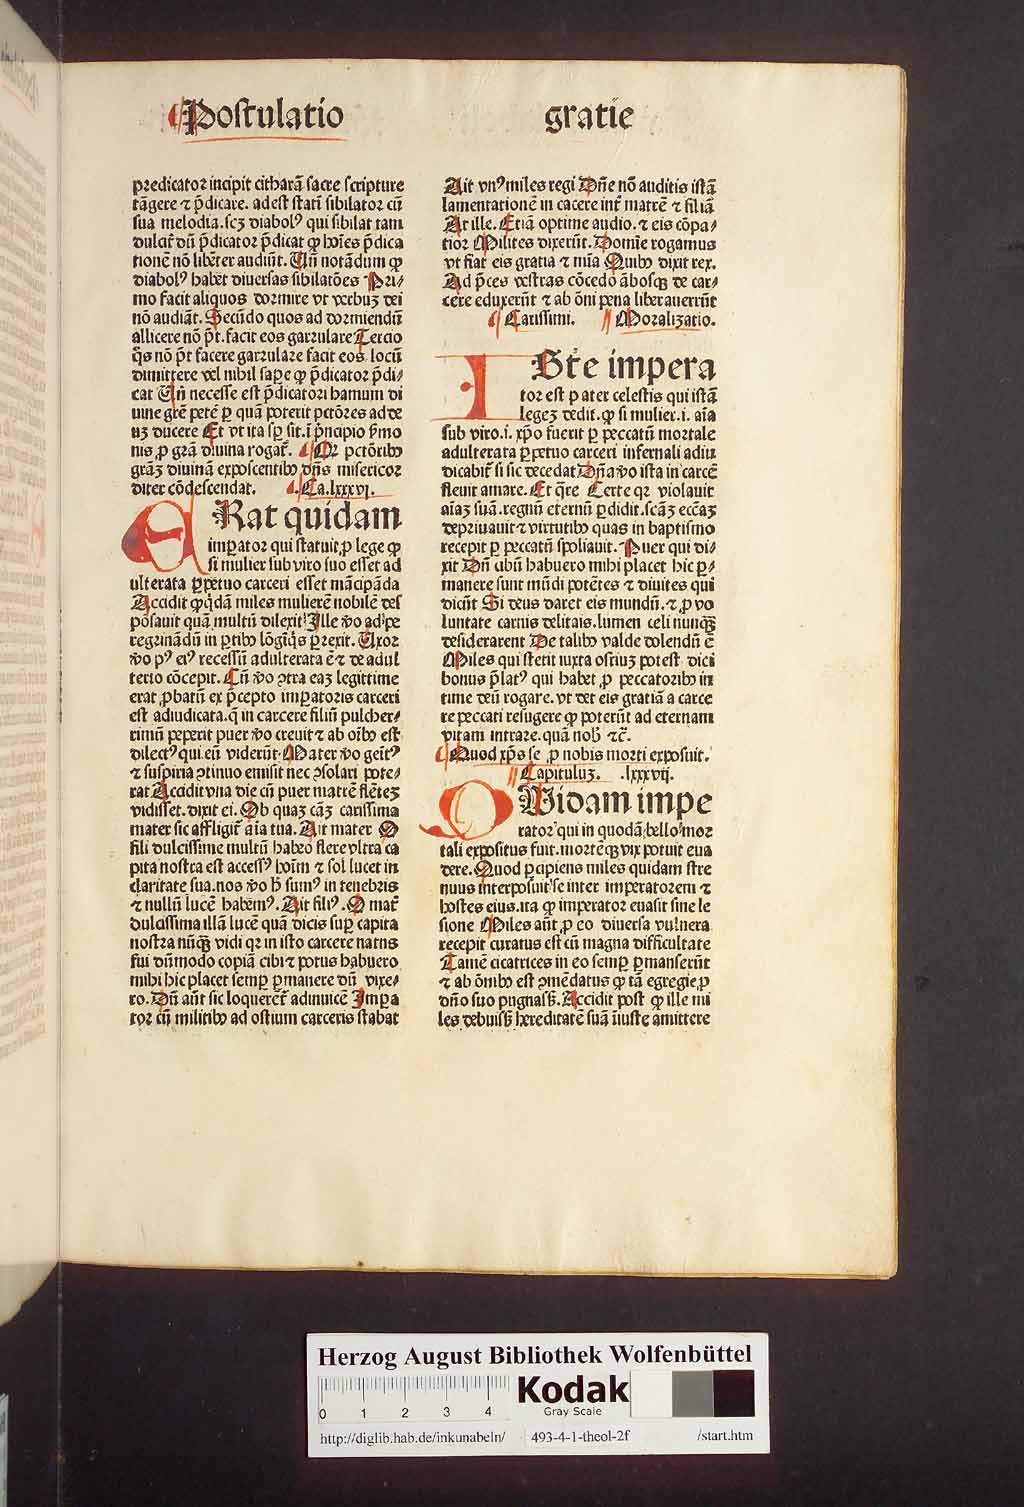 ¶ Postulatio gratie
predicator incipit citharā sacre scripture
tāgere ⁊ p̄dicare. adest statī sibilator cū
sua melodia. scꝫ diabolꝰ qui sibilat tam
dulcit̄ dū p̄dicator p̄dicat ꝙ hoīes p̄dica
tionē nō libēter audiūt. Uñ notādum ꝙ
diabolꝰ habet diuersas sibilatōes Pri⸗
mo facit aliquos dormire vt verbuꝫ dei
nō audiāt. Secūdo quos ad dormiendū
allicere nō pōt. facit eos garrulare Tercio
q̄s nō pōt facere garrulare facit eos. locū
dimittere vel nihil saꝑe ꝙ p̄dicator p̄di⸗
cat Uñ necesse est p̄dicatori hamum di
uine gr̄e petē ꝑ quā poterit pctōres ad de
uꝫ ducere Et vt ita sꝑ sit. ī pricipio ẜmo
nis, ꝓ grā diuina rogat̄. ¶ Or pctōribꝰ
grāꝫ diuinā exposcentibꝰ dñs misericor
diter cōdescendat. ¶ Ca. lxxxvj.
ERat quidam
imꝑator qui statuit, ꝓ lege ꝙ
si mulier sub viro suo esset ad
ulterata ꝑpetuo carceri esset mācipāda
Accidit ꝙ q̄dā miles mulierē nobilē des
posauit quā multū dilexit Ille v̊o ad ꝑe
regrinādū in ꝑtibꝰ lōgīqꝭ ꝑrexit. Uxor
v̊o pꝰ eiꝰ recessū adulterata ē ⁊ de adul
terio cōcepit. Cū v̊o ꝯtra eaꝫ legittime
erat ꝓbatū ex p̄cepto imꝑatoris carceri
est adiudicata. q̄ in carcere filiū pulcher⸗
rimū peperit puer v̊o creuit ⁊ ab oībꝰ est
dilectꝰ qui eū viderūt. Mater v̊o gemitꝰ
⁊ suspiria ꝯtinuo emisit nec ꝯsolari pote⸗
rat Accidit vna die cū puer matrē flētez
vidisset. dixit ei. Ob quaꝫ cāꝫ carissima
mater sic affligit̄ aīa tua. Ait mater O
fili dulcissime multū habeo flere vltra ca
pita nostra est accessꝰ hoīm ⁊ sol lucet in
claritate sua. nos v̊o h̄ sumꝰ in tenebris
⁊ nullū lucē habemꝰ. Ait filiꝰ. O mat̄
dulcissima illā lucē quā dicis suꝑ capita
nostra nūq̄ꝫ vidi qꝛ in isto carcere natus
fui dūmodo copiā cibi ⁊ potus habuero
mihi hic placet semꝑ ꝑmanere dū vixe⸗
ro. Dū aūt sic loquerēt̄ adinuicē Imꝑa
tor cū militibꝰ ad ostium carceris stabat
Ait vnꝰ miles regi Dñe nō auditis istā
lamentationē in carcere int̄ matrē ⁊ filiā
At ille. Etiā optime audio. ⁊ eis cōpa⸗
tior Milites dixerūt. Domīe rogamus
vt fiat eis gratia ⁊ mīa Quibꝰ dixit rex.
Ad p̄ces vestras cōcedo ābosqꝫ de car⸗
cere eduxerūt ⁊ ab ōni pena liberauerūt
¶ Carissimi. ¶ Moralizatio.
ISte impera
tor est pater celestis qui istā
legeꝫ dedit. ꝙ si mulier .i. aīa
sub viro .i. xp̄o fuerit ꝑ peccatū mortale
adulterata ꝑpetuo carceri infernali adiu
dicabit̄ si sic decedat Dñā v̊o ista in carcē
fleuit amare. Et q̄re Certe qꝛ violauit
aīaꝫ suā. regnū eternū ꝑdidit. scāꝫ eccāꝫ
depriuauit ⁊ virtutibꝰ quas in baptismo
recepit ꝑ peccatū spoliauit. Puer qui di⸗
xit Dū cibū habuero mihi placet hic ꝑ⸗
manere sunt mūdi potētes ⁊ diuites qui
dicūt Si deus daret eis mundū. ⁊ ꝓ vo
luntate carnis delitias. lumen celi nunq̄ꝫ
desiderarent De talibꝰ valde dolendū ē
Miles qui stetit iuxta ostiuꝫ potest dici
bonus p̄latꝰ qui habet ꝓ peccatoribꝰ in
time deū rogare. vt det eis gratiā a carce
re peccati resugere ꝙ poterūt ad eternam
vitam intrare. quā nob̄ ⁊c̄.
¶ Quod xp̄s se ꝓ nobis morti exposuit.
¶ Capituluꝫ. .lxxxvij.
QUidam impe
rator qui in quodā bello mor
tali expositus fuit. mortēqꝫ vix potuit eua
dere. Quod ꝑcipiens miles quidam stre
nuus interposuit se inter imperatorem ⁊
hostes eius. ita ꝙ imperator euasit sine le
sione Miles aūt ꝓ eo diuersa vulnera
recepit curatus est cū magna difficultate
Tamē cicatrices in eo semꝑ ꝑmanserūt
⁊ ab ōnibꝰ est ꝯmēdatus ꝙ tā egregie, ꝓ
dño suo pugnass̄. Accidit post ꝙ ille mi
les debuiss̄ hereditatē suā iiuste amittere
Herzog August Bibliothek Wolfenbüttel
0 1 2 3 4
Kodak
Gray Scale
http://diglib.hab.de/inkunabeln/ 493-4-1-theol-2f /start.htm